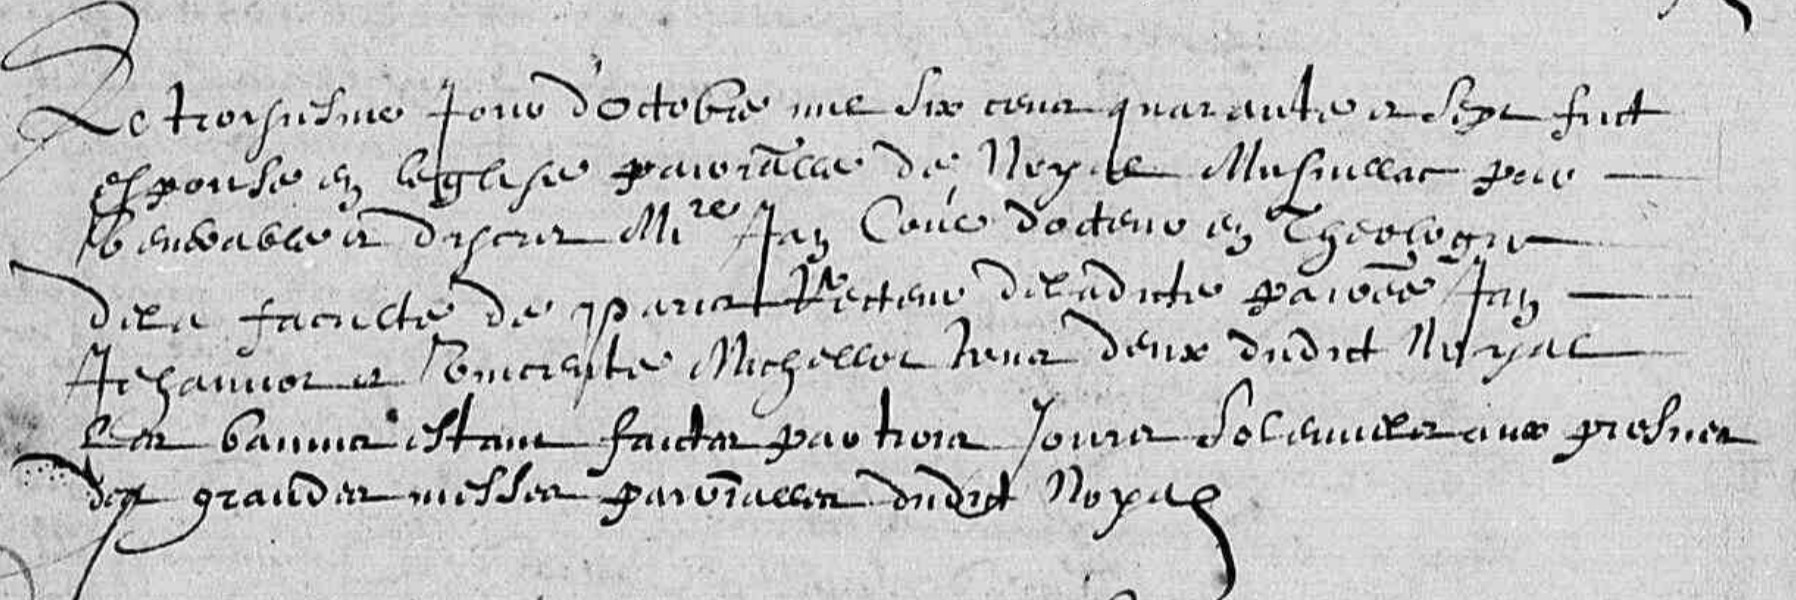 Le troisiesme jour d'Octobre mil six cens quarante et sept fust
espouse en leglise paroialle de Noyal Musuillac par
Venerable et discret Mire Jan Coué docteur en Theologie
dela faculté de paris Recteur deladicte paroee Jan
Jehannot et Michellot tous deux dudict Noyal
Les bannies estant faictes par trois jours solennels aux prosnes
des grandes messes paroialles dudict Noyal